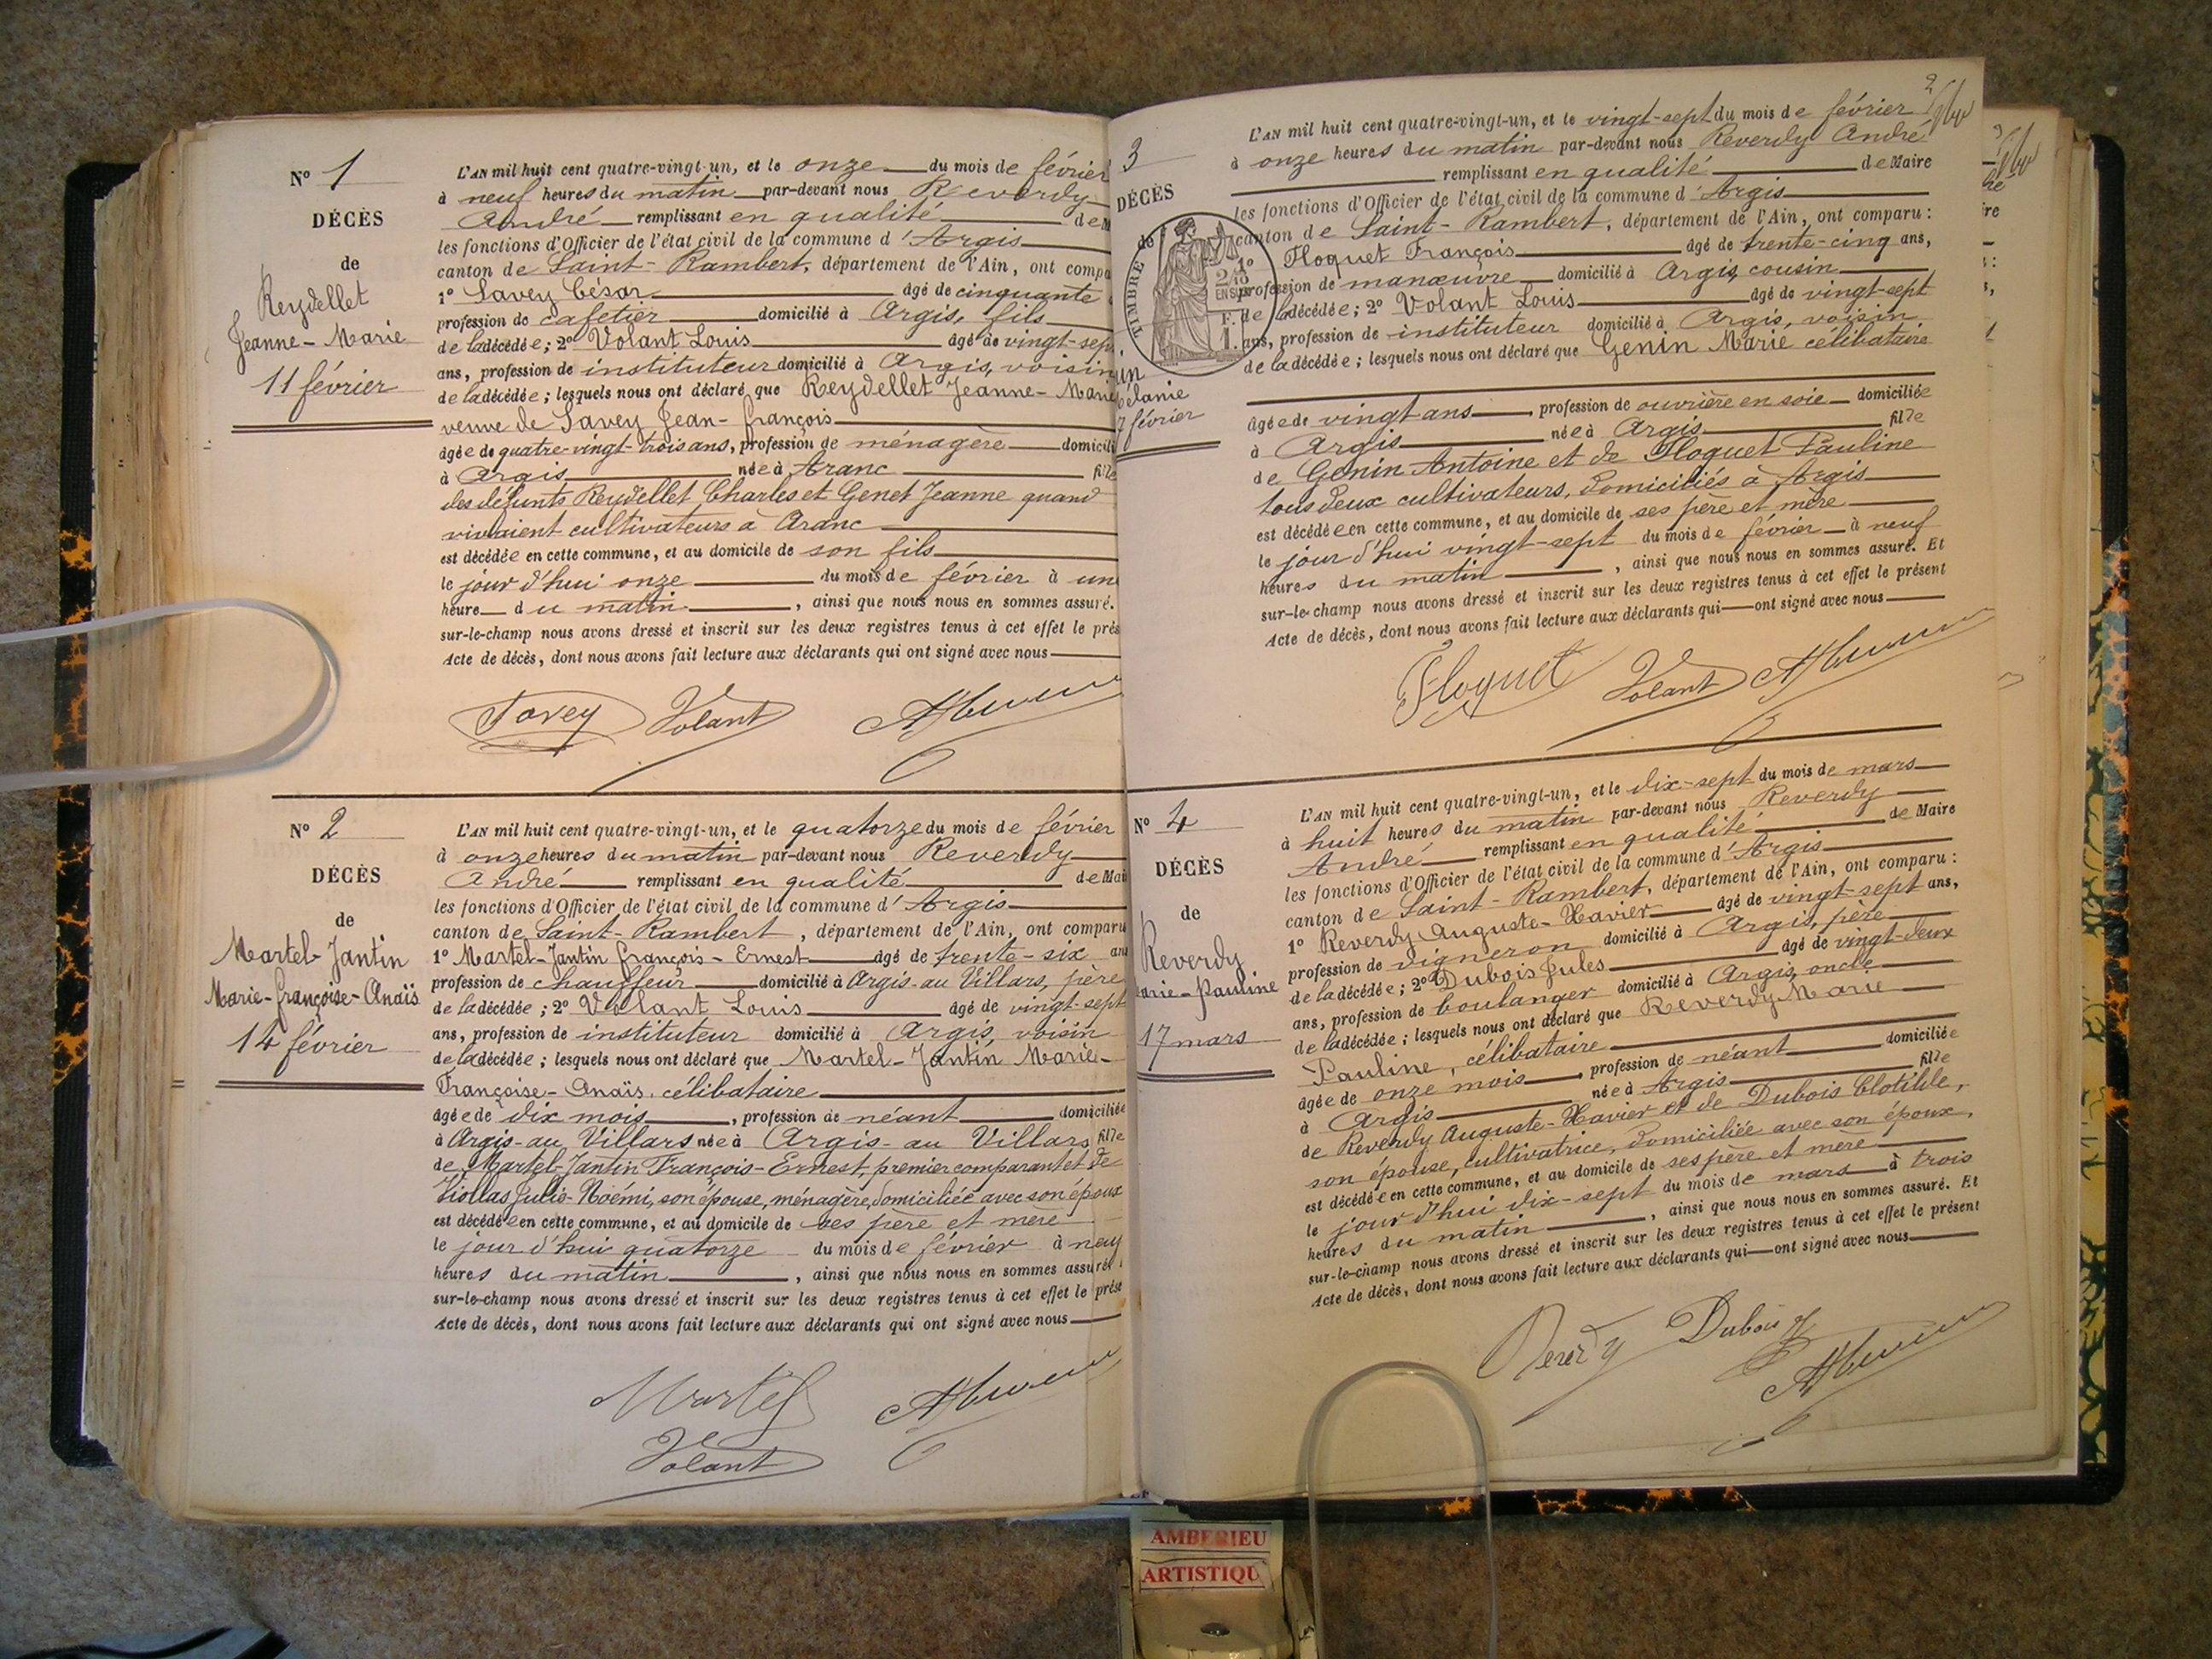 N° 1
DÉCÈS
de
Reydellet
Jeanne-Marie
11 février
L'AN mil huit cent quatre-vingt-un, et le onze du mois de février
à neuf heures du matin par-devant nous Reverdy
André remplissant en qualité de M
les fonctions d'Officier de l'état civil de la commune d'Argis
canton de Saint-Rambert, département de l'Ain, ont compa
1° Savey César âgé de cinquante
profession de cafetier domicilié à Argis, fils
de la décédée; 2° Volant Louis âgé de vingt-sept
ans, profession de instituteur domicilié à Argis, voisin
de la décédée; lesquels nous ont déclaré que Reydellet Jeanne-Marie
veuve de Savey Jean-François
âgée de quatre-vingt-trois ans, profession de ménagère domicili
à Argis née à Aranc fille
des défunts Reydellet Charles et Genet Jeanne quand
vivaient cultivateurs à Aranc
est décédée en cette commune, et au domicile de son fils
le jour d'hui onze du mois de février à une
heure du matin, ainsi que nous nous en sommes assuré.
sur-le-champ nous avons dressé et inscrit sur les deux registres tenus à cet effet le prés
Acte de décès, dont nous avons fait lecture aux déclarants qui ont signé avec nous
Savey Volant
N° 2
DÉCÈS
de
Martel-Jantin
Marie-Françoise-Anaïs
14 février
L'AN mil huit cent quatre-vingt-un, et le quatorze du mois de février
à onze heures du matin par-devant nous Reverdy
André remplissant en qualité de Mai
les fonctions d'Officier de l'état civil de la commune d'Argis
canton de Saint-Rambert, département de l'Ain, ont comparu
1° Martel-Jantin François-Ernest âgé de trente-six an
profession de chauffeur domicilié à Argis-au Villars, père
de la décédée; 2° Volant Louis âgé de vingt-sept
ans, profession de instituteur domicilié à Argis, voisin
de la décédée; lesquels nous ont déclaré que Martel-Jantin Marie-
Françoise-Anaïs, célibataire
âgée de dix mois, profession de néant domiciliée
à Argis-au Villars née à Argis-au Villars fille
de Martel-Jantin François-Ernest, premier comparant et de
Viollas Julie-Noémi, son épouse, ménagère, domiciliée avec son époux
est décédée en cette commune, et au domicile de ses père et mère
le jour d'hui quatorze du mois de février à neuf
heures du matin, ainsi que nous nous en sommes assuré
sur-le-champ nous avons dressé et inscrit sur les deux registres tenus à cet effet le prése
Acte de décès, dont nous avons fait lecture aux déclarants qui ont signé avec nous
Martel
Volant
3
DÉCÈS
de
TIMBRE
Mélanie
février
L'AN mil huit cent quatre-vingt-un, et le vingt-sept du mois de février
à onze heures du matin par-devant nous Reverdy André
remplissant en qualité de Maire
les fonctions d'Officier de l'état civil de la commune d'Argis
canton de Saint-Rambert, département de l'Ain, ont comparu :
1° Floquet François âgé de trente-cinq ans,
profession de manœuvre domicilié à Argis, cousin
de la décédée; 2° Volant Louis âgé de vingt-sept
ans, profession de instituteur domicilié à Argis, voisin
de la décédée; lesquels nous ont déclaré que Genin Marie célibataire
âgée de vingt ans, profession de ouvrière en soie domiciliée
à Argis née à Argis fille
de Genin Antoine et de Floquet Pauline
tous deux cultivateurs, domiciliés à Argis
est décédée en cette commune, et au domicile de ses père et mère
le jour d'hui vingt-sept du mois de février à neuf
heures du matin, ainsi que nous nous en sommes assuré. Et
sur-le-champ nous avons dressé et inscrit sur les deux registres tenus à cet effet le présent
Acte de décès, dont nous avons fait lecture aux déclarants qui ont signé avec nous
Floquet Volant
N° 4
DÉCÈS
de
Reverdy
Marie-Pauline
17 mars
L'AN mil huit cent quatre-vingt-un, et le dix-sept du mois de mars
à huit heures du matin par-devant nous Reverdy
André remplissant en qualité de Maire
les fonctions d'Officier de l'état civil de la commune d'Argis
canton de Saint-Rambert, département de l'Ain, ont comparu :
1° Reverdy Auguste-Xavier âgé de vingt-sept ans,
profession de vigneron domicilié à Argis, père
de la décédée; 2° Dubois Jules âgé de vingt-deux
ans, profession de boulanger domicilié à Argis, oncle
de la décédée; lesquels nous ont déclaré que Reverdy Marie
Pauline, célibataire
âgée de onze mois, profession de néant domiciliée
à Argis née à Argis fille
de Reverdy Auguste-Xavier et de Dubois Clotilde,
son épouse, cultivatrice, domiciliée avec son époux,
est décédée en cette commune, et au domicile de ses père et mère
le jour d'hui dix-sept du mois de mars à trois
heures du matin, ainsi que nous nous en sommes assuré. Et
sur-le-champ nous avons dressé et inscrit sur les deux registres tenus à cet effet le présent
Acte de décès, dont nous avons fait lecture aux déclarants qui ont signé avec nous
Reverdy Dubois J
AMBERIEU
ARTISTIQU